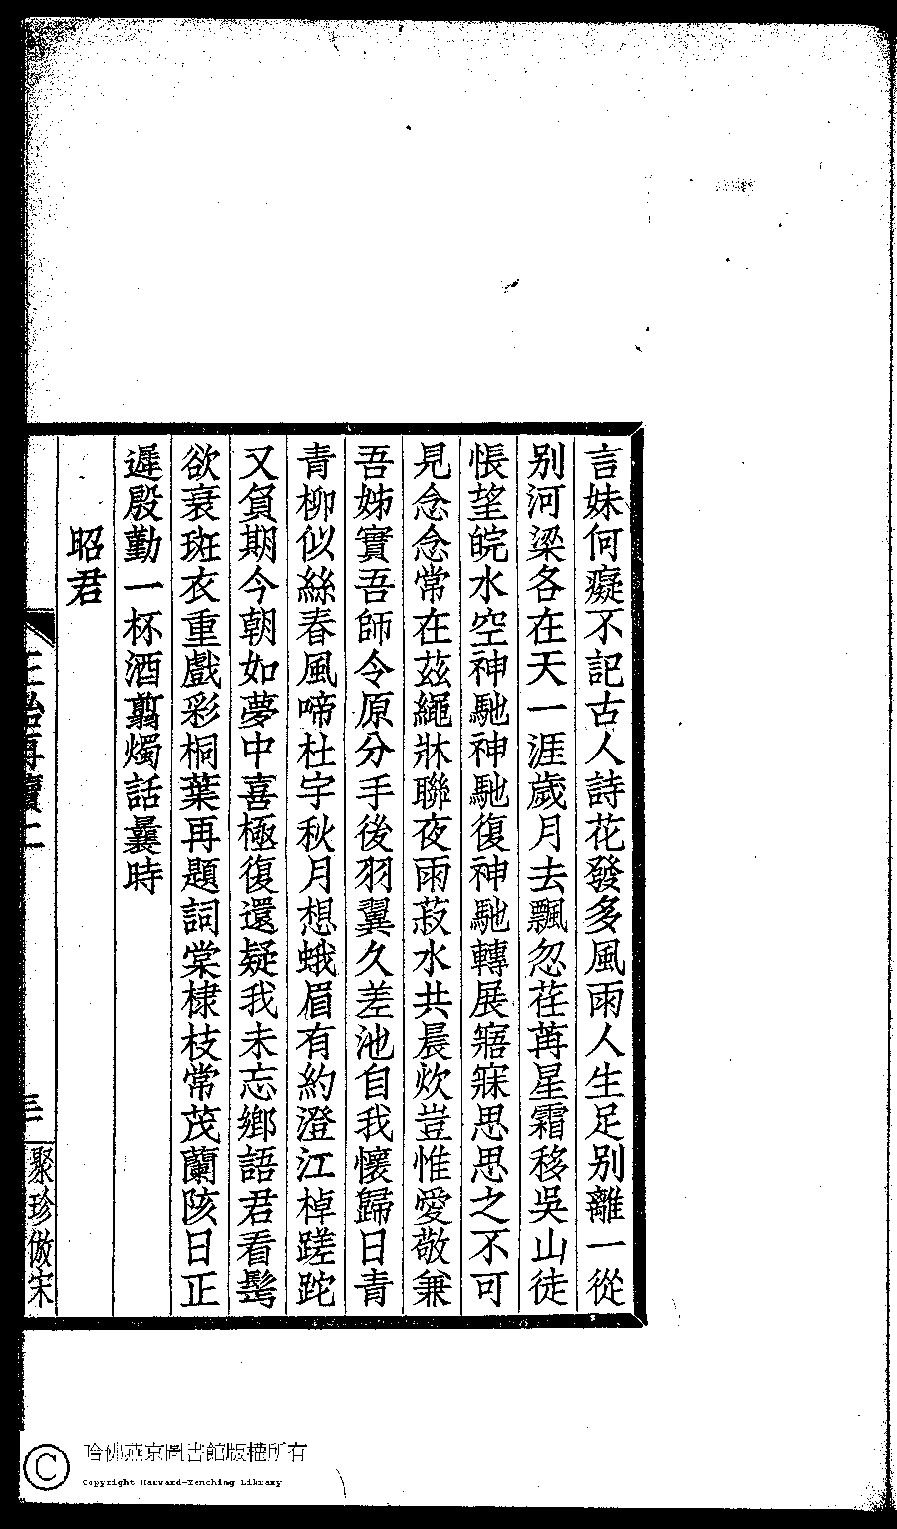 言妹何癡不記古人詩花發多風雨人生足别離一從
别河梁各在天一涯歲月去飄忽荏苒星霜移吳山徒
悵望皖水空神馳神馳復神馳轉展寤寐思思之不可
見念念常在茲繩牀聯夜雨菽水共晨炊豈惟愛敬兼
吾姊實吾師令原分手後羽翼久差池自我懷歸日青
青柳似絲春風啼杜宇秋月想蛾眉有約澄江棹蹉跎
又負期今朝如夢中喜極復還疑我未忘鄉語君看髩
欲衰斑衣重戲彩桐葉再題詞棠棣枝常茂蘭陔日正
遲殷勤一杯酒翦燭話曩時
昭君
三
聚珍倣宋
哈佛燕京圖書館版權所有
Copyright Harvard-Yenching Library